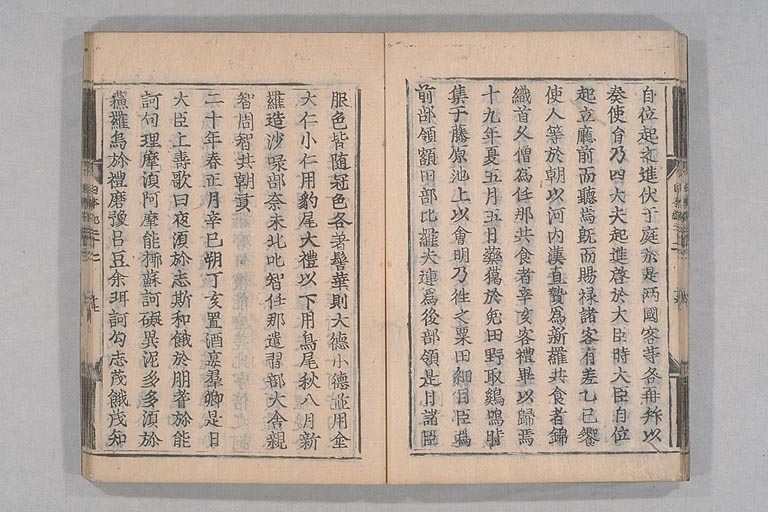 自位起之進伏于庭於是兩國客等各再拜以
奏使旨乃四大夫起進啓於大臣時大臣自位
起立廳前而聽焉既而賜祿諸客有差乙巳饗
使人等於朝以河内漢直贄爲新羅共食者錦
織首久僧爲任那共食者辛亥客禮畢以歸焉
十九年夏五月五日藥獵於兎田野取鷄鳴時
集于藤原池上以會明乃往之粟田細目臣爲
前部領額田部比羅夫連爲後部領是日諸臣
服色皆隨冠色各著髻華則大德小德並用金
大仁小仁用豹尾大禮以下用鳥尾秋八月新
羅遣沙㖨部奈末北叱智任那遣習部大舍親
智周智共朝貢
二十年春正月辛巳朔丁亥置酒宴羣卿是日
大臣上壽歌曰夜湏彌志斯和餓於朋耆於能
訶句理摩湏阿摩能椰蘇訶礙異泥多多湏於
蘇羅烏於禮磨豫呂豆余珥訶勾志茂餓茂知